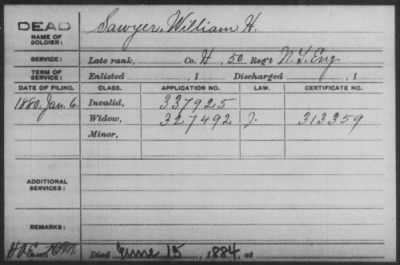 DEAD
NAME OF SOLDIER: Sawyer, William H.
SERVICE: Late rank, Co. H, 50 Reg't N.Y. Eng.
TERM OF SERVICE: Enlisted , 1 Discharged , 1
DATE OF FILING. CLASS. APPLICATION NO. LAW. CERTIFICATE NO.
1880. Jan. 6. Invalid, 337925
Widow, 327492 J. 313359
Minor,
ADDITIONAL SERVICES:
REMARKS:
Died June 15, 1884, at